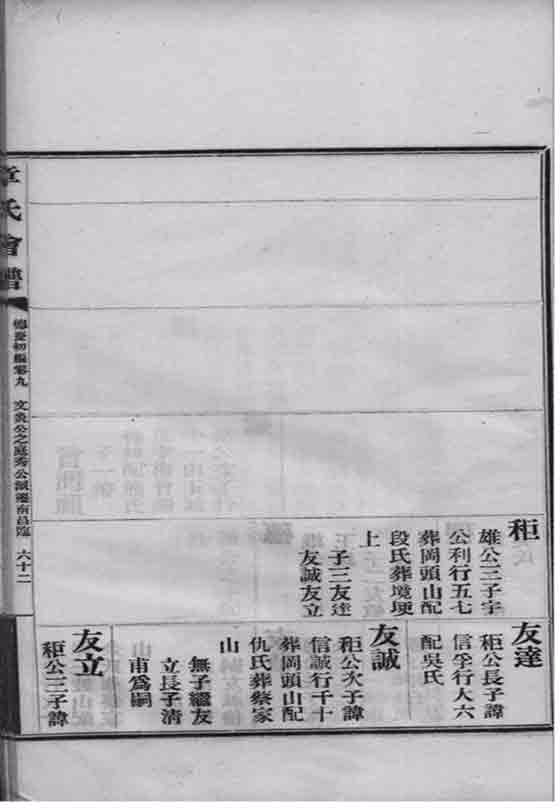 秬
雄公三子字
公利行五七
葬岡頭山配
段氏葬境埂
上
子三友達
友誠友立
友達
秬公長子諱
信孚行人六
配吳氏
友誠
秬公次子諱
信誠行千十
葬岡頭山配
仇氏葬蔡家
山
無子繼友
立長子清
甫爲嗣
友立
秬公三子諱
章氏會譜
德慶初編卷九
文貴公之庭秀公派遷南昌臨
六十二